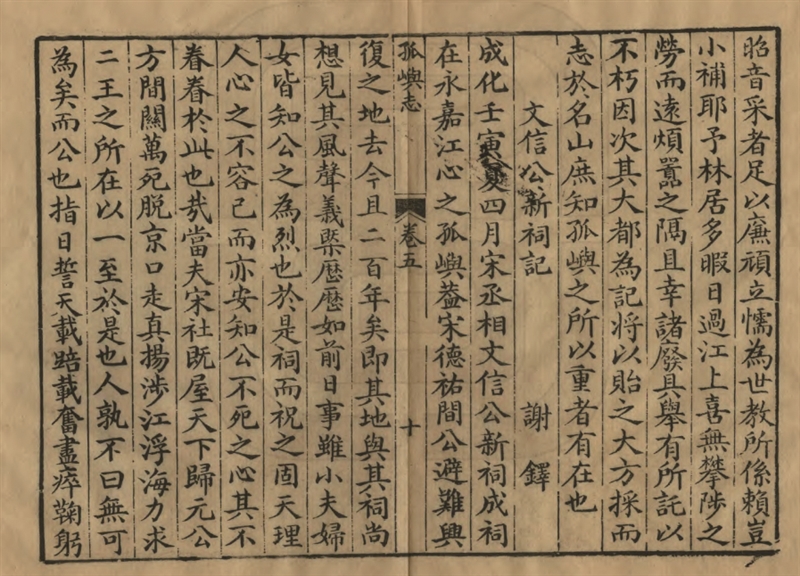 昭音采者足以廉頑立懦為世教所係賴豈
小補耶予林居多暇日過江上喜無攀陟之
勞而遠煩囂之隅且幸諸廢具舉有所託以
不朽因次其大都為記將以貽之大方採而
志於名山庶知孤嶼之所以重者有在也
文信公新祠記 謝鐸
成化壬寅夏四月宋丞相文信公新祠成祠
在永嘉江心之孤嶼葢宋德祐間公避難興
孤嶼志 卷五 十
復之地去今且二百年矣即其地與其祠尚
想見其風聲義槩歷歷如前日事雖小夫婦
女皆知公之為烈也於是祠而祝之固天理
人心之不容已而亦安知公不死之心其不
眷眷於此也哉當夫宋社既屋天下歸元公
方間關萬死脫京口走真揚涉江浮海力求
二王之所在以一至於是也人孰不曰無可
為矣而公也指日誓天載踣載奮盡瘁鞠躬